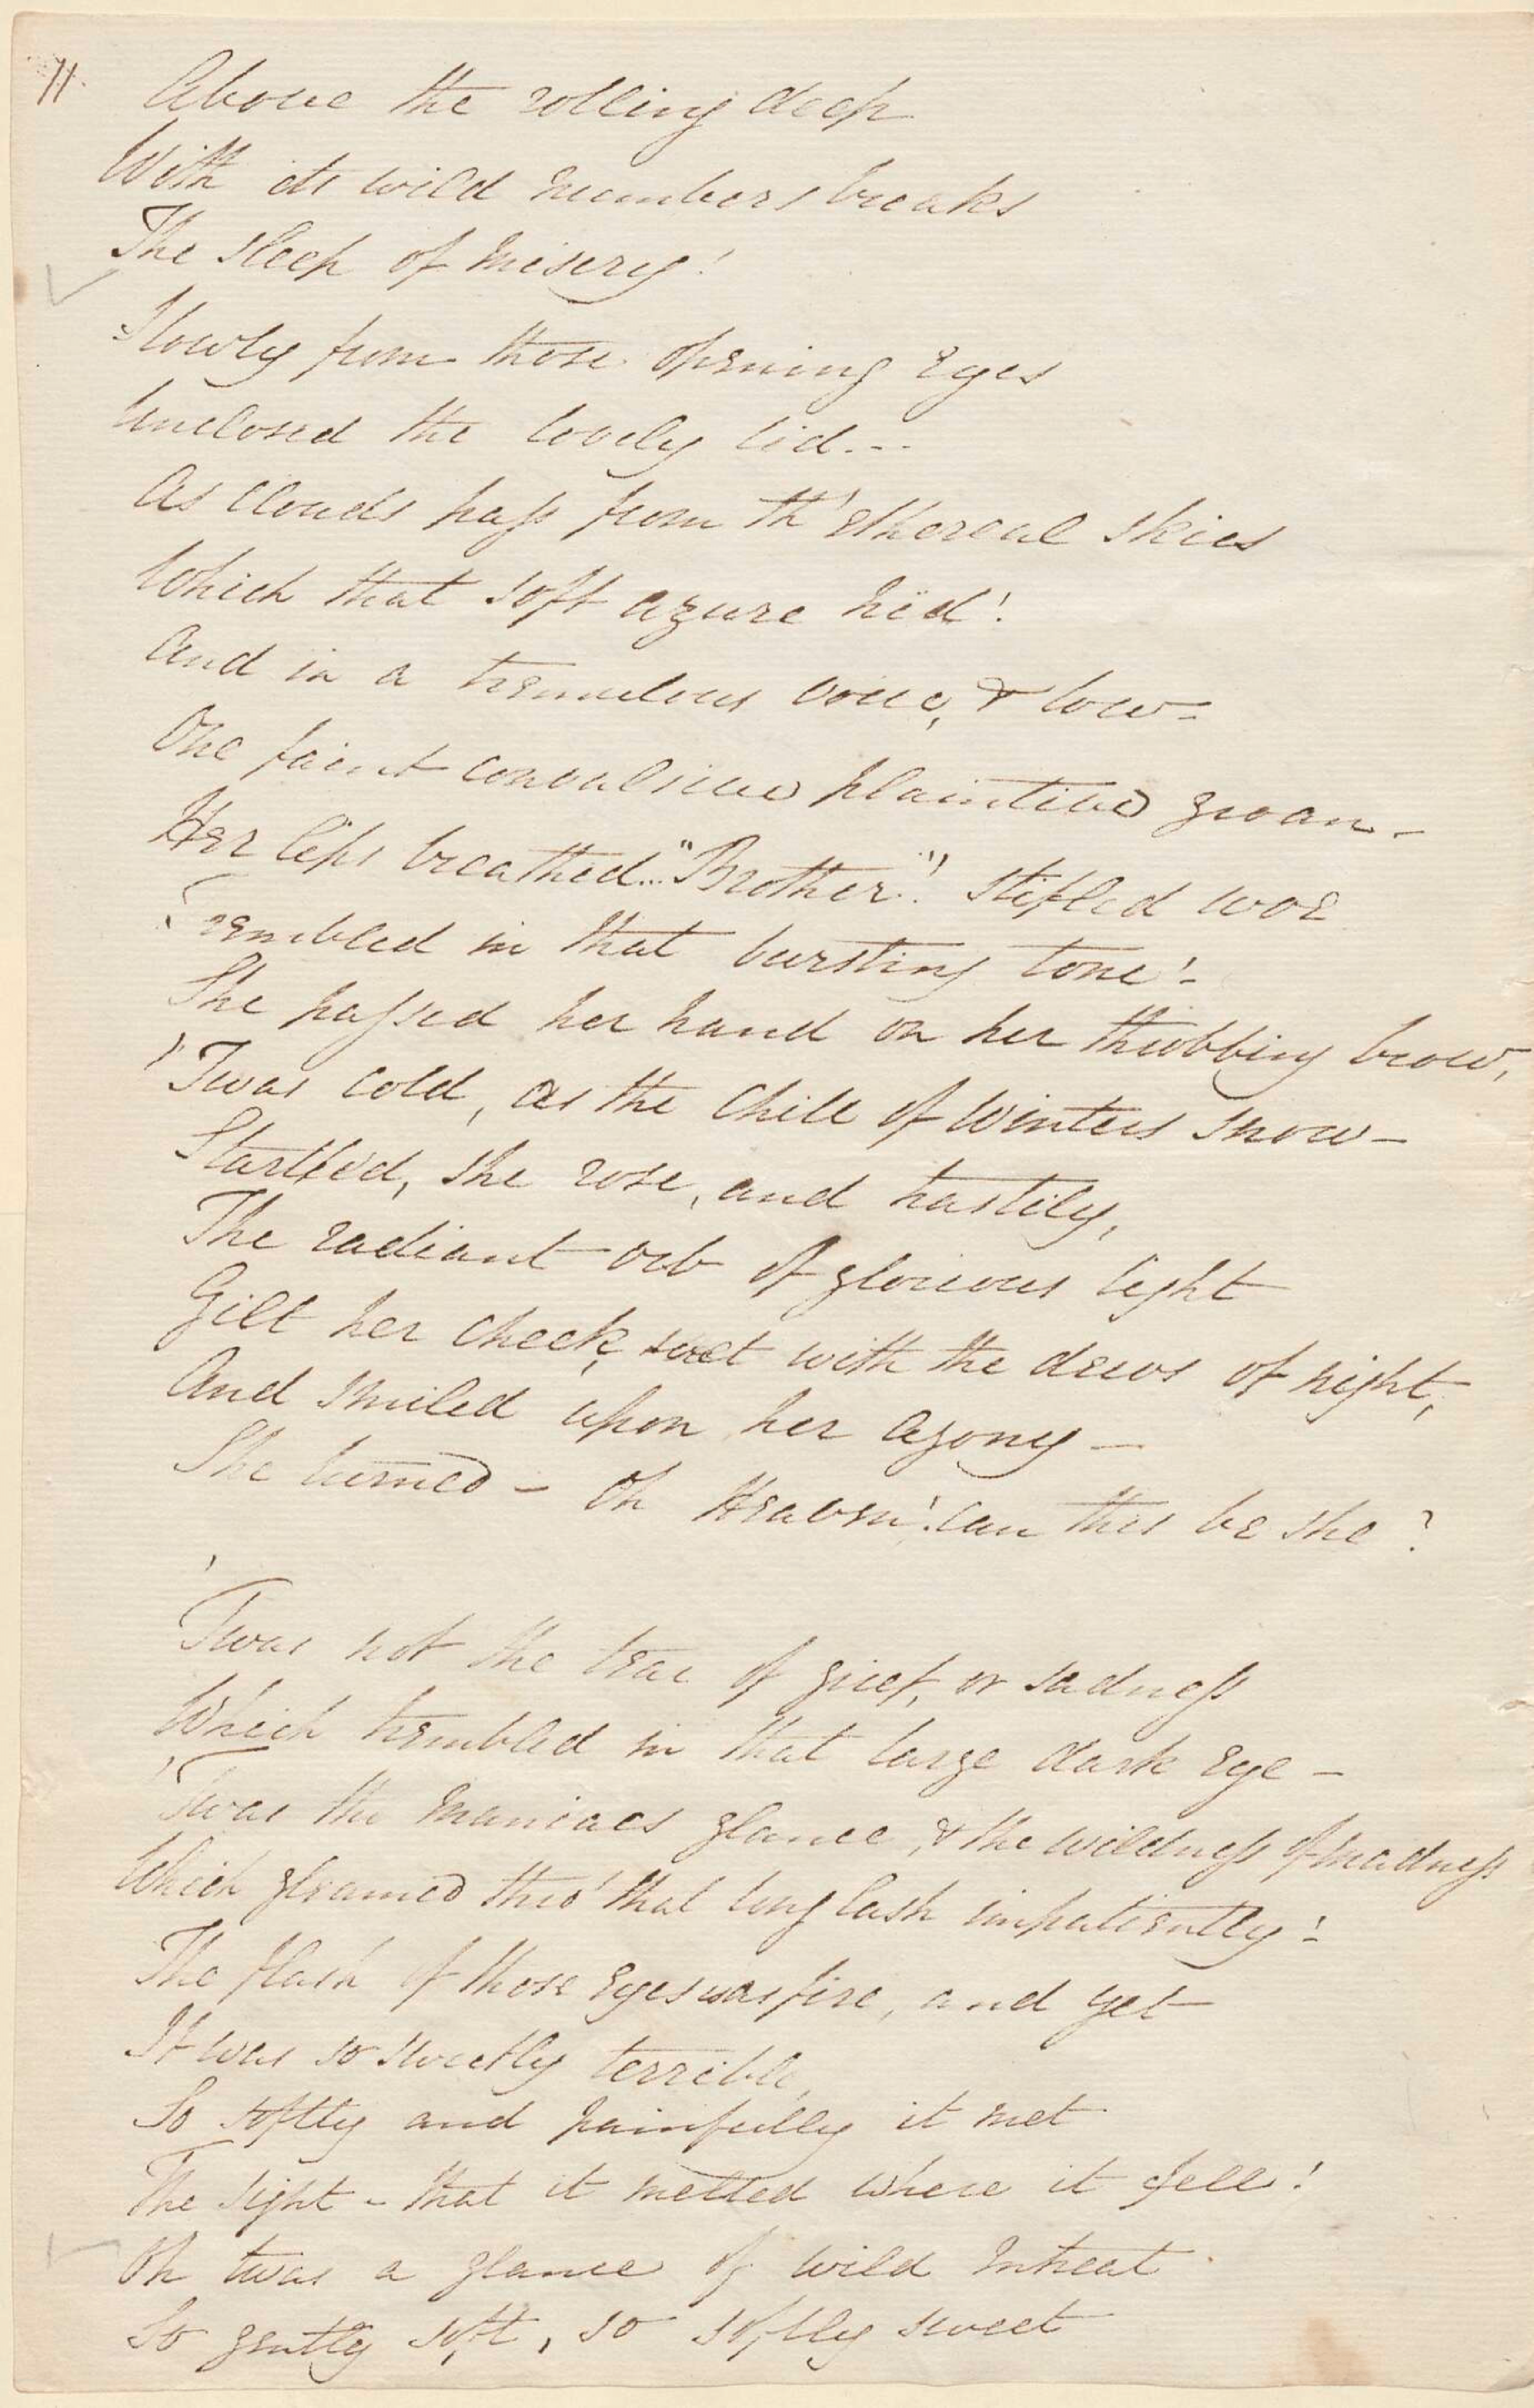 11.
Above the rolling deep
With its wild numbers breaks
The sleep of misery!
Slowly from those opening eyes
Unclosed the lovely lid...
As clouds pass from th' ethereal skies
Which that soft azure hid!
And in a tremulous voice, & low-
One faint convulsive plaintive groan-
Her lips breathed.. "Brother"! stifled woe
Trembled in that bursting tone!-
She passed her hand on her throbbing brow,
'Twas cold, as the chill of winters snow-
Startled, she rose, and hastily,
The radiant orb of glorious light
Gilt her cheek, wet with the dews of night,
And smiled upon her agony-
She turned - Oh Heaven! can this be she?
'Twas not the tear of grief, or sadness
Which trembled in that large dark eye-
'Twas the maniacs glance, & the wildness of madness
Which gleamed thro' that long lash impatiently!-
The flash of those eyes was fire, and yet
It was so sweetly terrible,
So softly and painfully it met
The sight - that it melted where it fell!
Oh twas a glance of wild intreat
So gently soft, so softly sweet